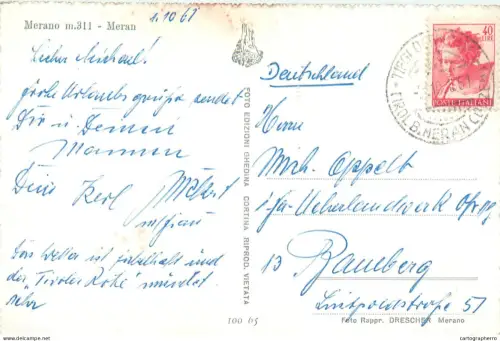 Merano m.311 - Meran
1.10 61
Lieber Michael!
frohe Urlaubsgrüße sendet
Dir u Deinen
Mannen
Dein Karl
u Frau
Das Wetter ist fabelhaft und
der „Tiroler Rote" mundet
sehr
FOTO EDIZIONI GHEDINA CORTINA RIPROD. VIETATA
100 65
40
LIRE
POSTE ITALIANE
TIROLO
TIROL B. MERAN
Deutschland
Herrn
Mich. Oppelt
i/fa Ueberlandwerk
13 Bamberg
Luitpoldstraße 51
Foto Rappr. DRESCHER Merano
cartographero